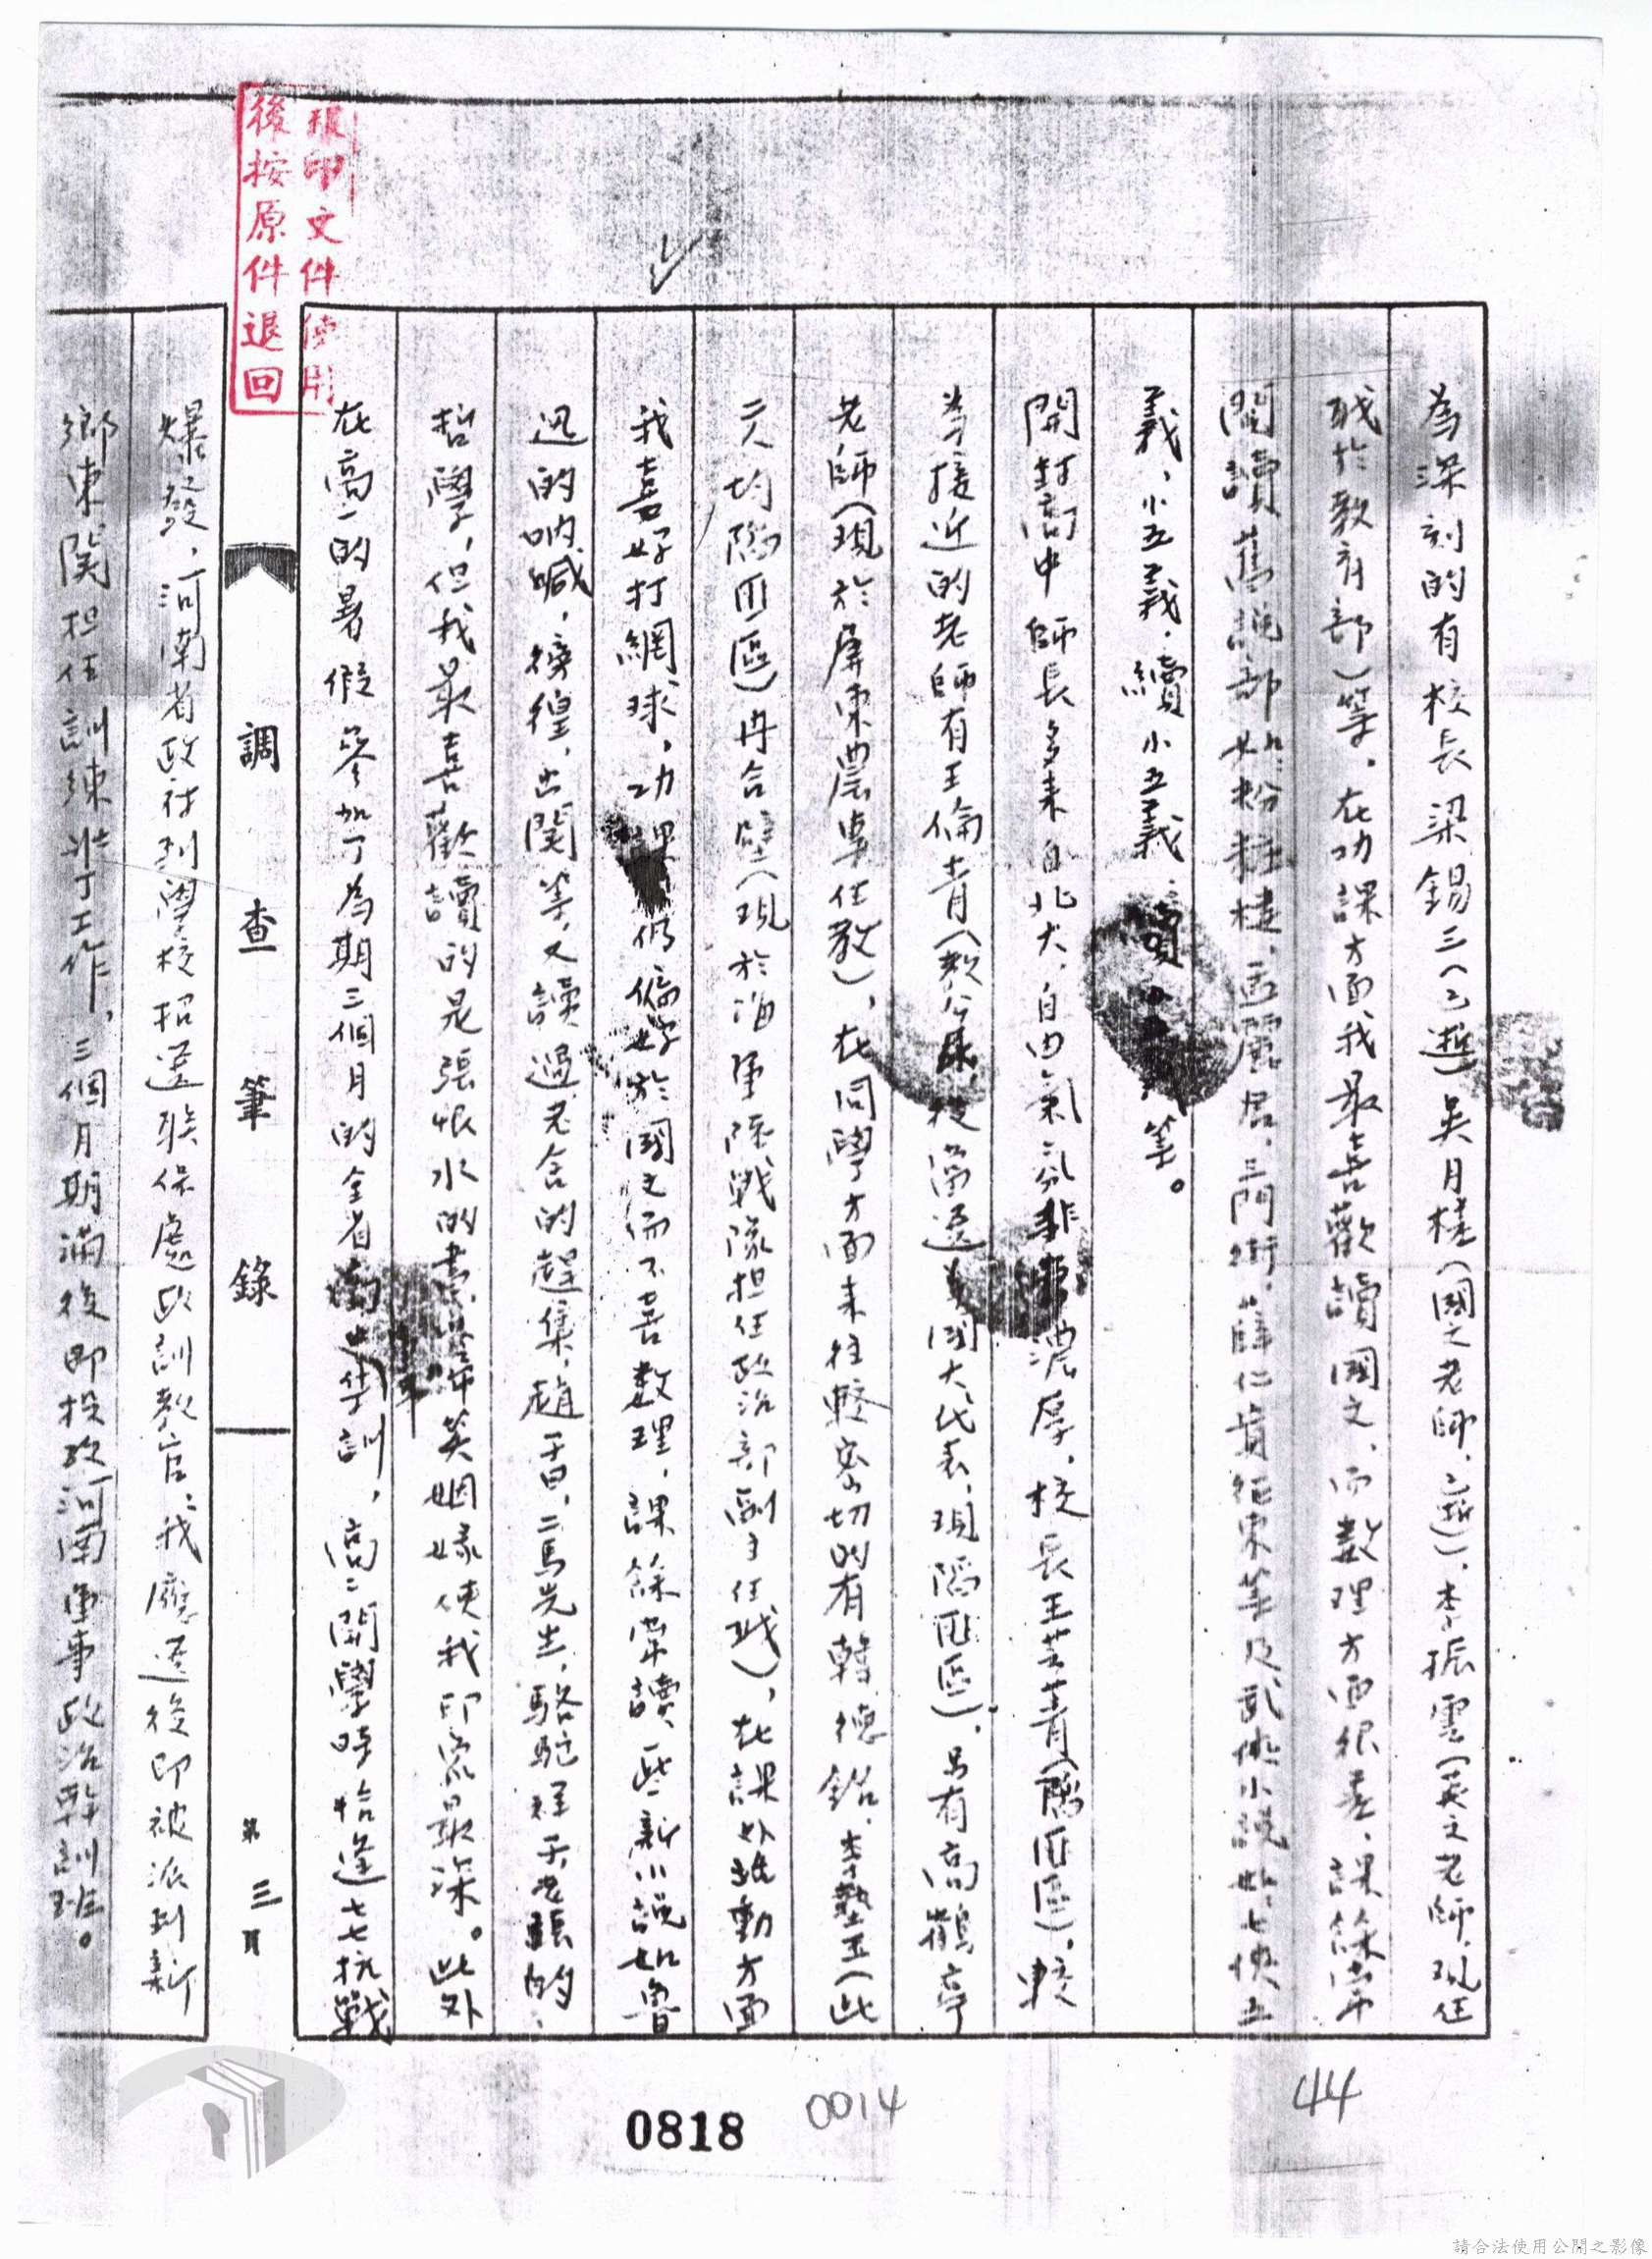 為深刻的有校長梁錫三(已逝)吳月樵(國文老師,逝),李振雲(英文老師,現任
職於教育部)等。在功課方面我最喜歡讀國文,而數理方面很差,課餘常
閱讀舊說部如粉粧樓,三門街,薛仁貴征東等及武俠小說如七俠五
義,小五義,續小五義,等。
開封高中師長多來自北大,自由氣氛非常濃厚,校長王芸青(陷匪區),較
為接近的老師有王倫青(教公民,後當選為國大代表,現陷匪區),另有高鶴亭
老師(現於屏東農專任教),在同學方面來往較密切的有韓德銘,李墊五(此
二人均陷匪區)冉合壁(現於海軍陸戰隊担任政治部副主任職),在課外活動方面
我喜好打網球,功課仍偏好於國文而不喜数理,課餘常讀一些新小說如魯
迅的吶喊,徬徨,出関等,又讀過老舍的趕集,趙子曰,二馬先生,駱駝祥子老張的
哲學,但我最喜歡讀的是張恨水的書啼笑姻緣使我印象最深。此外
在高一的暑假參加了為期三個月的全省高中集訓,高二開學時恰逢七七抗戰
調查筆錄
第三頁
爆發,河南省政府到學校招選聯保處政訓教官,我應選後即被派到新
鄉東関担任訓練壯丁工作,三個月期滿後即投攷河南軍事政治幹訓班。
複印文件使用
後按原件退回
0818
0014
44
請合法使用公開之影像